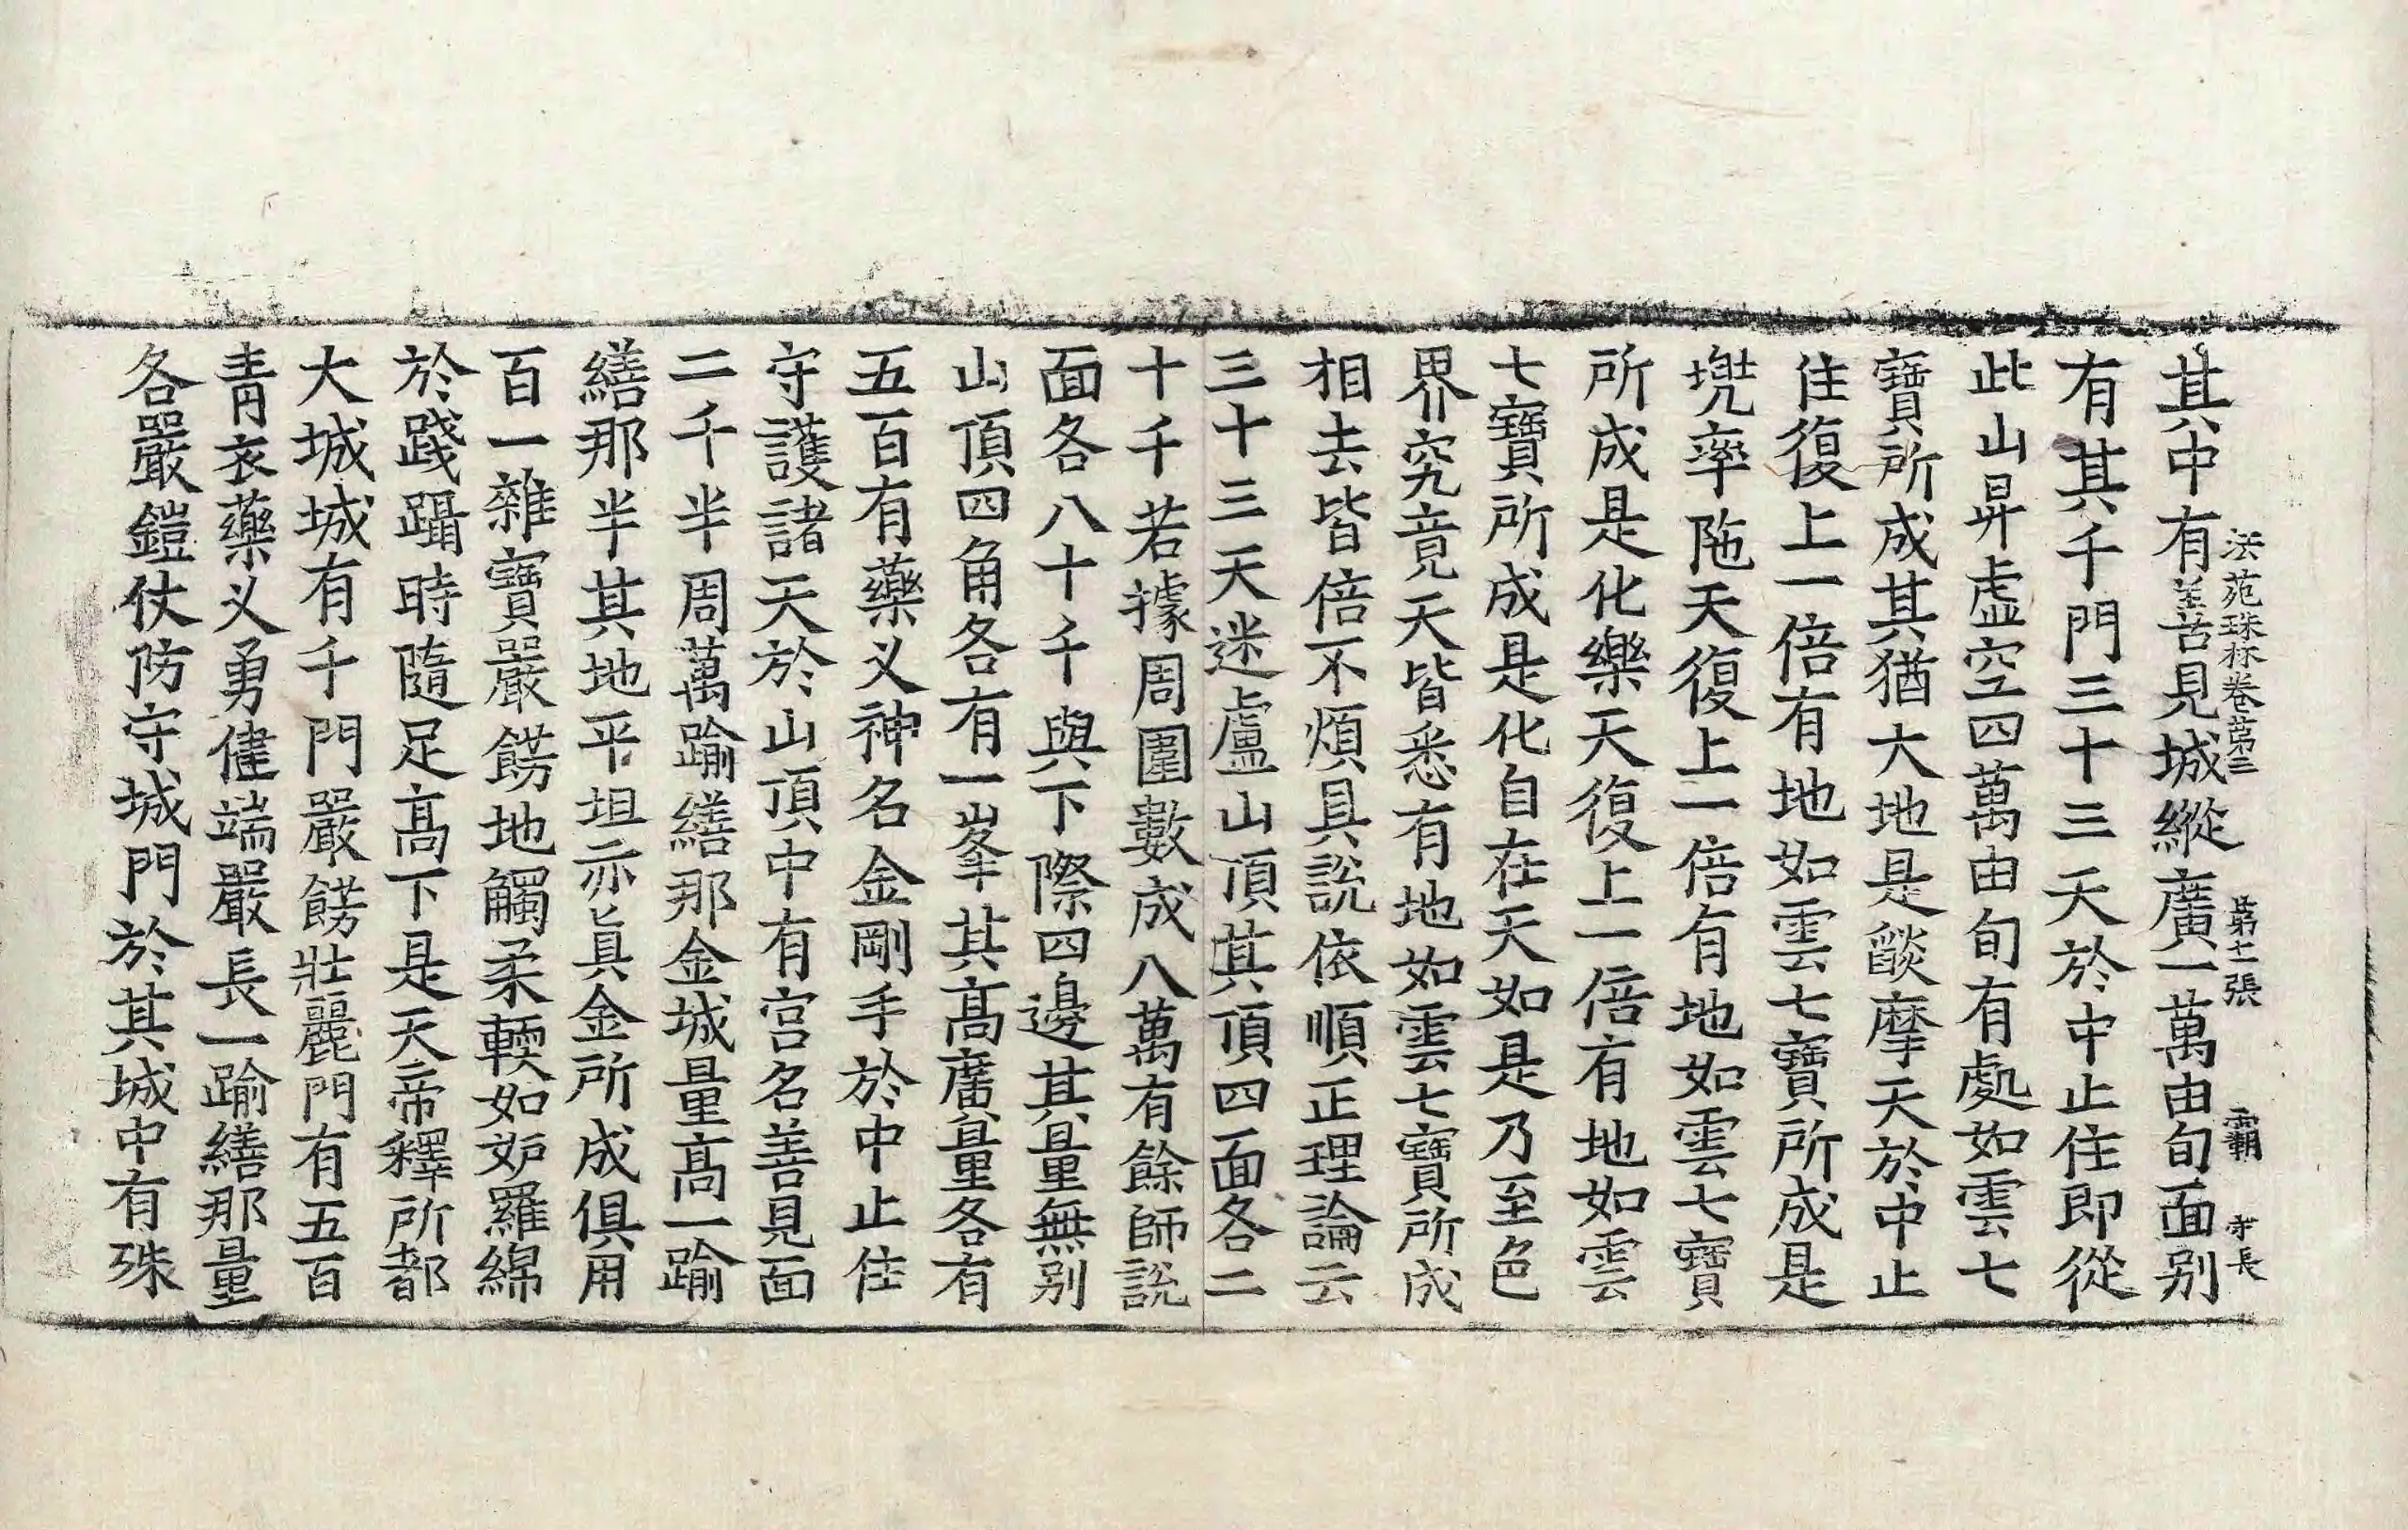 法苑珠林卷第三 第十一張 霸 字長
其中有善見城縱廣一萬由旬面別
有其千門三十三天於中止住即從
此山昇虛空四萬由旬有處如雲七
寶所成其猶大地是燄摩天於中止
住復上一倍有地如雲七寶所成是
兠率陁天復上一倍有地如雲七寶
所成是化樂天復上一倍有地如雲
七寶所成是化自在天如是乃至色
界究竟天皆悉有地如雲七寶所成
相去皆倍不煩具說依順正理論云
三十三天迷盧山頂其頂四面各二
十千若據周圍數成八萬有餘師說
面各八十千與下際四邊其量無別
山頂四角各有一峯其髙廣量各有
五百有藥义神名金剛手於中止住
守護諸天於山頂中有宮名善見面
二千半周萬踰繕那金城量髙一踰
繕那半其地平坦亦真金所成俱用
百一雜寶嚴餝地觸柔輭如妬羅綿
於踐躡時隨足髙下是天帝釋所都
大城城有千門嚴餝壯麗門有五百
青衣藥义勇健端嚴長一踰繕那量
各嚴鎧仗防守城門於其城中有殊